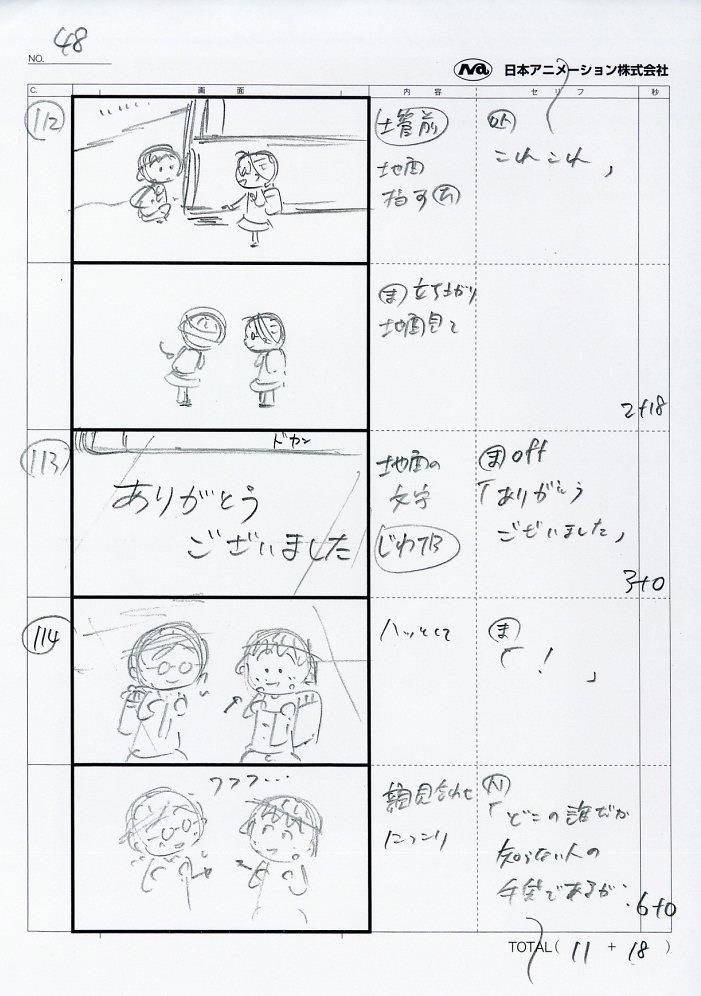 NO. 48
日本アニメーション株式会社
C. 画面 内容 セリフ 秒
112
土管前
地面
指す
これこれ」
ま 立ち上がり
地面見て
2+18
113
ドカン
ありがとう
ございました
地面の
文字
じわTB
ま off
「ありがとう
ございました」
3+0
114
ハッとして
ま
「！」
フフフ…
顔見合わせ
にっこり
「どこの誰だか
知らない人の
手袋であるが
6+0
TOTAL( 11 + 18 )